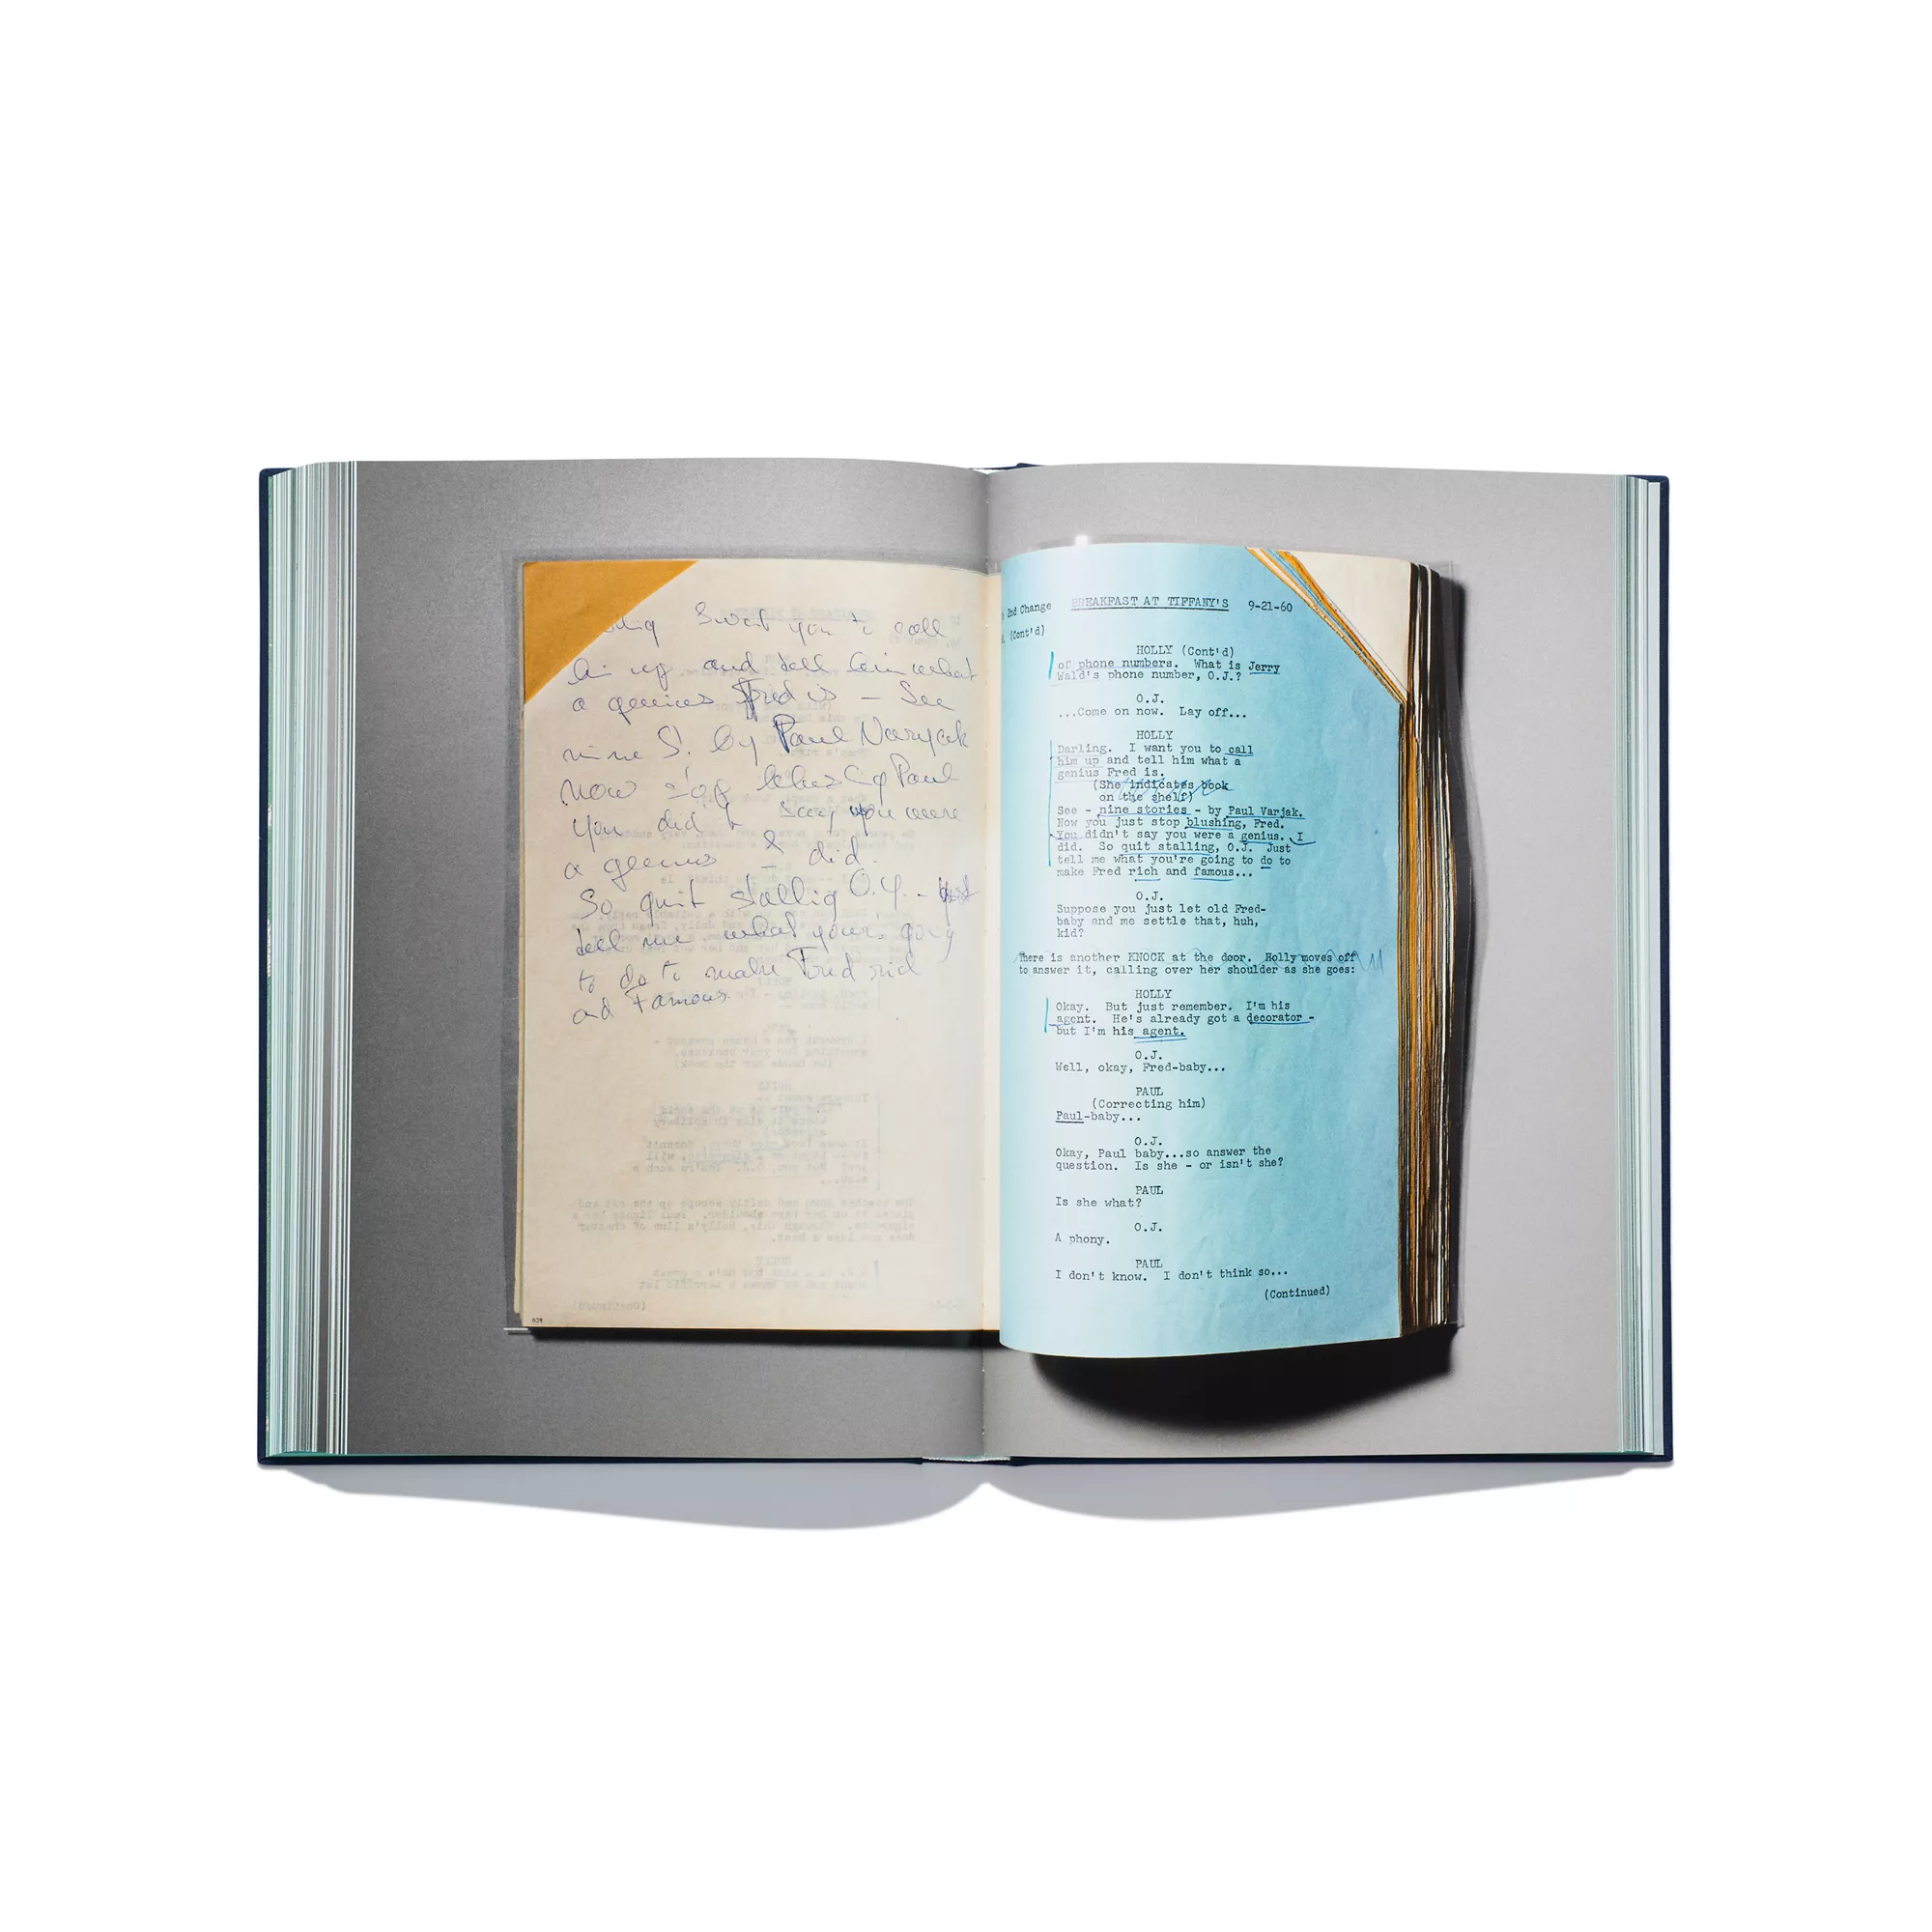 I want you to call
him up and tell him what
a genius Fred is - See
nine S. by Paul Varjak
now stop blushing Paul
you didn't say you were
a genius I did.
So quit stallig O.J. - just
tell me what your going
to do to make Fred rich
and Famous
2nd Change BREAKFAST AT TIFFANY'S 9-21-60
(Cont'd)
HOLLY (Cont'd)
of phone numbers. What is Jerry
Wald's phone number, O.J.?
O.J.
...Come on now. Lay off...
HOLLY
Darling. I want you to call
him up and tell him what a
genius Fred is.
(She indicates book
on the shelf)
See - nine stories - by Paul Varjak.
Now you just stop blushing, Fred.
You didn't say you were a genius. I
did. So quit stalling, O.J. Just
tell me what you're going to do to
make Fred rich and famous...
O.J.
Suppose you just let old Fred-
baby and me settle that, huh,
kid?
There is another KNOCK at the door. Holly moves off
to answer it, calling over her shoulder as she goes:
HOLLY
Okay. But just remember. I'm his
agent. He's already got a decorator -
but I'm his agent.
O.J.
Well, okay, Fred-baby...
PAUL
(Correcting him)
Paul-baby...
O.J.
Okay, Paul baby...so answer the
question. Is she - or isn't she?
PAUL
Is she what?
O.J.
A phony.
PAUL
I don't know. I don't think so...
(Continued)